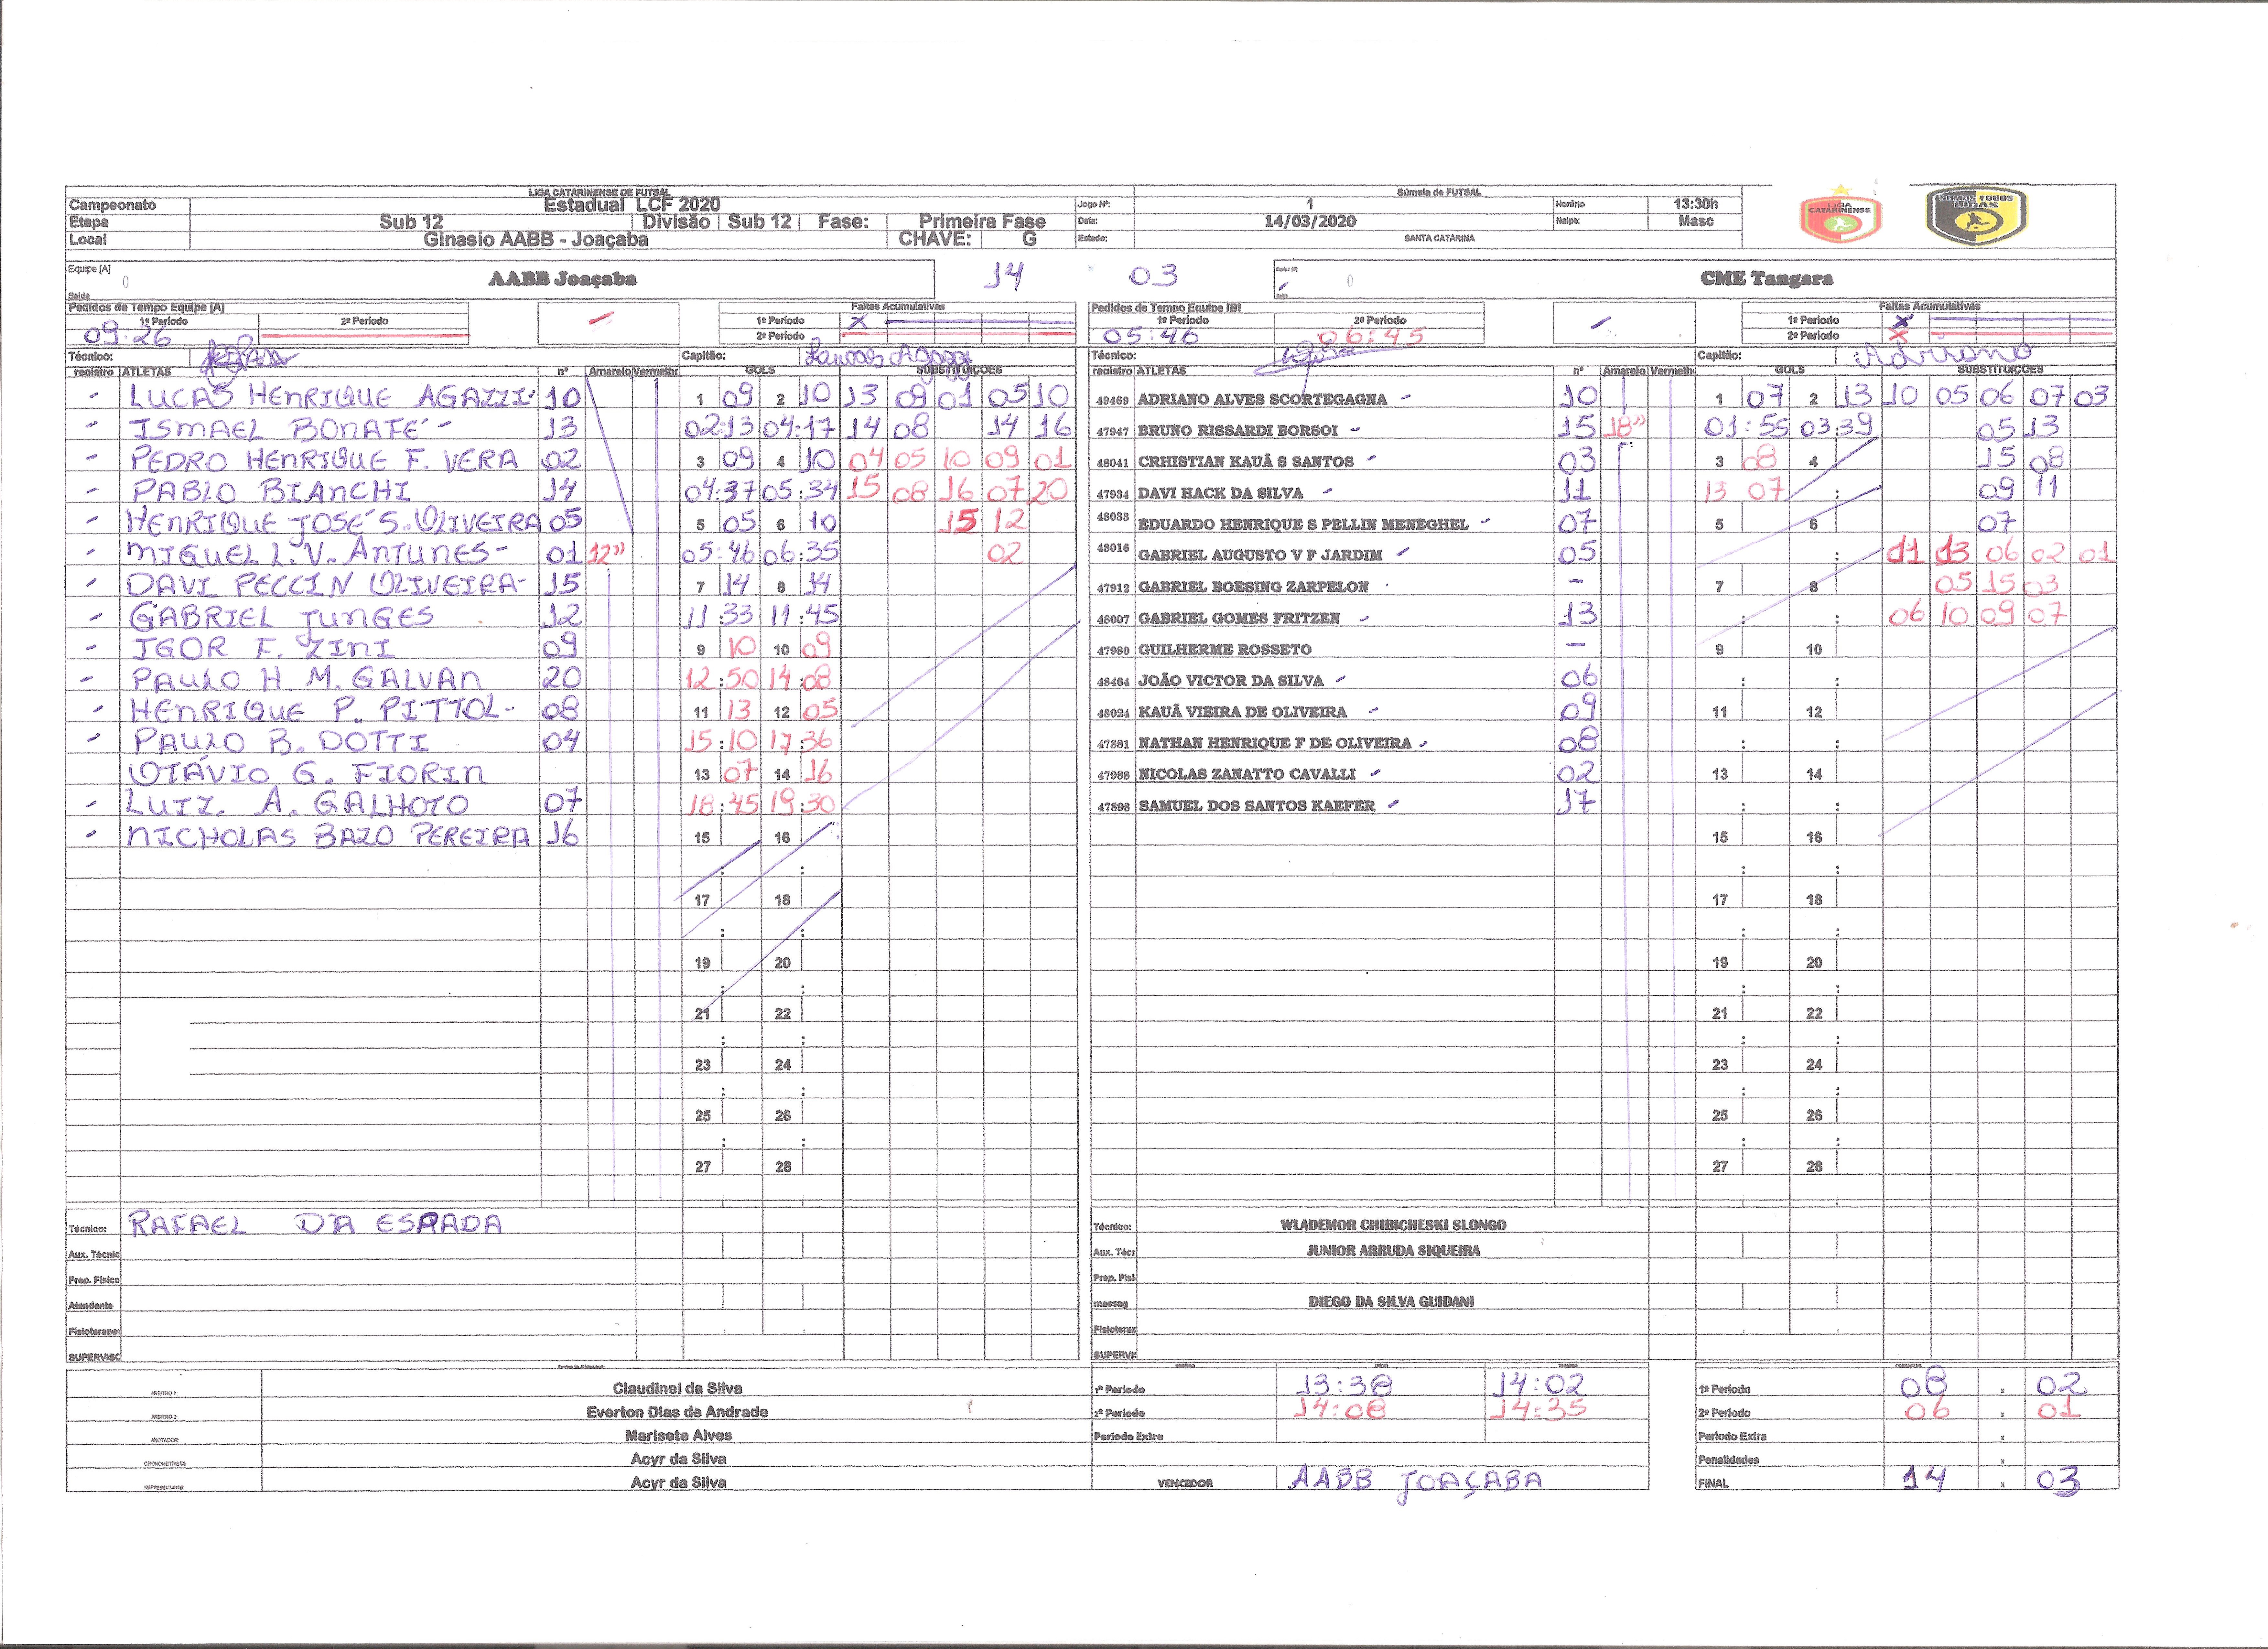 LIGA CATARINENSE DE FUTSAL Súmula de FUTSAL
Campeonato Estadual LCF 2020 Jogo Nº: 1 Horário 13:30h
Etapa Sub 12 Divisão Sub 12 Fase: Primeira Fase Data: 14/03/2020 Naipe: Masc
Local Ginasio AABB - Joaçaba CHAVE: G Estado: SANTA CATARINA
LIGA CATARINENSE
SOMOS TODOS LIGAS
Equipe [A] 0 AABB Joaçaba 14 03 Equipe [B] 0 CME Tangara
Saída Saída
Pedidos de Tempo Equipe [A] Faltas Acumulativas Pedidos de Tempo Equipe [B] Faltas Acumulativas
1º Período 2º Período 1º Período X 1º Período 2º Período 1º Período X
09:26 2º Período 05:46 06:45 2º Período X
Técnico: Capitão: Lucas Agazzi Técnico: Capitão: Adriano
registro ATLETAS nº Amarelo Vermelho GOLS SUBSTITUIÇÕES registro ATLETAS nº Amarelo Vermelh GOLS SUBSTITUIÇÕES
- LUCAS HENRIQUE AGAZZI 10 1 09 2 10 13 09 01 05 10 49469 ADRIANO ALVES SCORTEGAGNA 10 1 07 2 13 10 05 06 07 03
- ISMAEL BONAFÉ - 13 02:13 04:17 14 08 14 16 47947 BRUNO RISSARDI BORSOI 15 18" 01:55 03:39 05 13
- PEDRO HENRIQUE F. VERA 02 3 09 4 10 04 05 10 09 01 48041 CRHISTIAN KAUÃ S SANTOS 03 3 08 4 15 08
- PABLO BIANCHI 14 04:37 05:34 15 08 16 07 20 47934 DAVI HACK DA SILVA 11 13 07 : 09 11
- HENRIQUE JOSÉ S. OLIVEIRA 05 5 05 6 10 15 12 48033 EDUARDO HENRIQUE S PELLIN MENEGHEL 07 5 6 07
- MIGUEL L. V. ANTUNES - 01 12" 05:46 06:35 02 48016 GABRIEL AUGUSTO V F JARDIM 05 : 11 13 06 02 01
- DAVI PECCIN OLIVEIRA - 15 7 14 8 14 47912 GABRIEL BOESING ZARPELON - 7 8 05 15 03
- GABRIEL JUNGES 12 11:33 11:45 48007 GABRIEL GOMES FRITZEN 13 : : 06 10 09 07
- IGOR F. ZINI 09 9 10 10 09 47980 GUILHERME ROSSETO - 9 10
- PAULO H. M. GALVAN 20 12:50 14:08 48464 JOÃO VICTOR DA SILVA 06 : :
- HENRIQUE P. PITTOL - 08 11 13 12 05 48024 KAUÃ VIEIRA DE OLIVEIRA 09 11 12
- PAULO B. DOTTI 04 15:10 17:36 47881 NATHAN HENRIQUE F DE OLIVEIRA 08 : :
OTÁVIO G. FIORIN 13 07 14 16 47988 NICOLAS ZANATTO CAVALLI 02 13 14
- LUIZ. A. GALHOTO 07 18:45 19:30 47898 SAMUEL DOS SANTOS KAEFER 17 : :
- NICHOLAS BAZO PEREIRA 16 15 16 15 16
: : : :
17 18 17 18
: : : :
19 20 19 20
: : : :
21 22 21 22
: : : :
23 24 23 24
: : : :
25 26 25 26
: : : :
27 28 27 28
Técnico: RAFAEL D'A ESPADA Técnico: WLADEMOR CHIBICHESKI SLONGO
Aux. Técnic Aux. Técr JUNIOR ARRUDA SIQUEIRA
Prep. Físico Prep. Físi
Atendente massag DIEGO DA SILVA GUIDANI
Fisioterapeu Fisioteraz
SUPERVISC SUPERVI
Equipe de Arbitragem
ARBITRO 1: Claudinei da Silva 1º Período 13:38 14:02 1º Período 08 x 02
ARBITRO 2 Everton Dias de Andrade 2º Período 14:08 14:35 2º Período 06 x 01
ANOTADOR Marisete Alves Período Extra Período Extra x
CRONOMETRISTA Acyr da Silva Penalidades x
REPRESENTANTE Acyr da Silva VENCEDOR AABB JOAÇABA FINAL 14 x 03